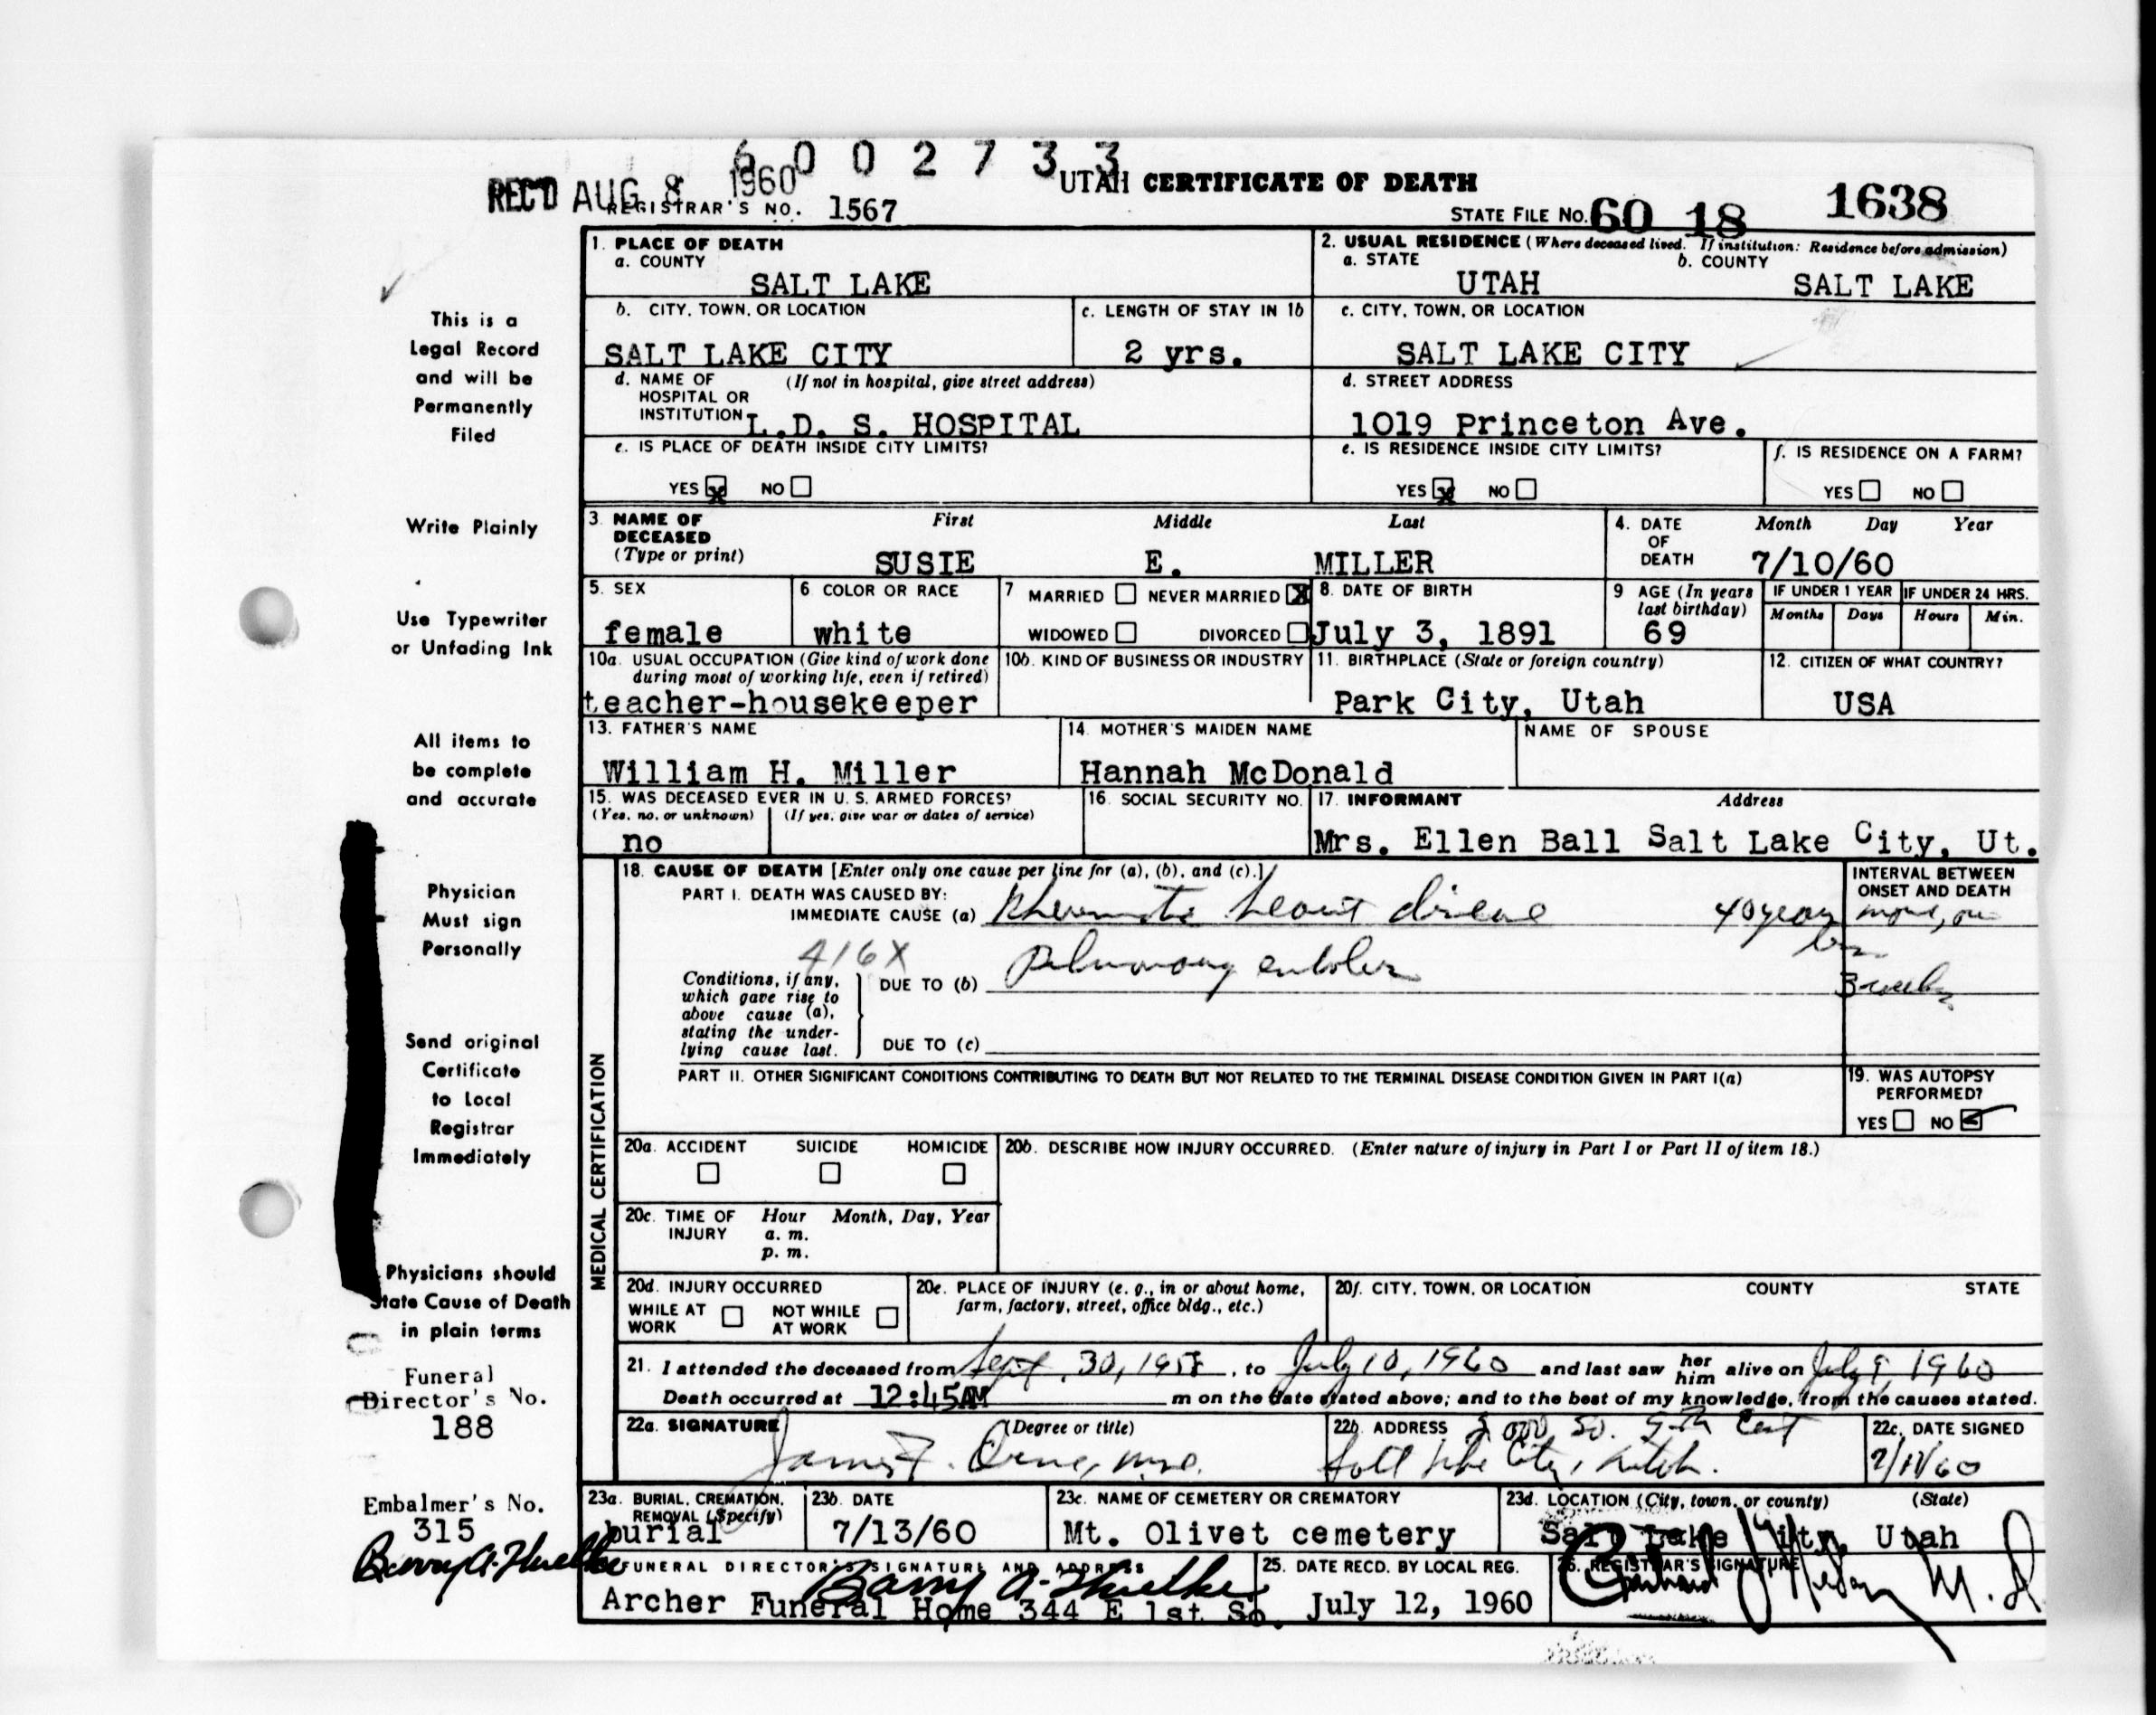 6 0 0 2 7 3 3
REC'D AUG 8 1960 UTAH CERTIFICATE OF DEATH
REGISTRAR'S NO. 1567 STATE FILE NO. 60 18 1638
1. PLACE OF DEATH
a. COUNTY
SALT LAKE
2. USUAL RESIDENCE (Where deceased lived. If institution: Residence before admission)
a. STATE b. COUNTY
UTAH SALT LAKE
b. CITY, TOWN, OR LOCATION
SALT LAKE CITY
c. LENGTH OF STAY IN 1b
2 yrs.
c. CITY, TOWN, OR LOCATION
SALT LAKE CITY
d. NAME OF (If not in hospital, give street address)
HOSPITAL OR
INSTITUTION L.D. S. HOSPITAL
d. STREET ADDRESS
1019 Princeton Ave.
e. IS PLACE OF DEATH INSIDE CITY LIMITS?
YES X NO
e. IS RESIDENCE INSIDE CITY LIMITS?
YES X NO
f. IS RESIDENCE ON A FARM?
YES NO
3. NAME OF DECEASED First Middle Last
(Type or print) SUSIE E. MILLER
4. DATE OF DEATH Month Day Year
7/10/60
5. SEX
female
6 COLOR OR RACE
white
7 MARRIED NEVER MARRIED X
WIDOWED DIVORCED
8. DATE OF BIRTH
July 3, 1891
9 AGE (In years last birthday)
69
IF UNDER 1 YEAR IF UNDER 24 HRS.
Months Days Hours Min.
10a. USUAL OCCUPATION (Give kind of work done
during most of working life, even if retired)
teacher-housekeeper
10b. KIND OF BUSINESS OR INDUSTRY
11. BIRTHPLACE (State or foreign country)
Park City, Utah
12. CITIZEN OF WHAT COUNTRY?
USA
13. FATHER'S NAME
William H. Miller
14. MOTHER'S MAIDEN NAME
Hannah McDonald
NAME OF SPOUSE
15. WAS DECEASED EVER IN U. S. ARMED FORCES?
(Yes, no, or unknown) (If yes, give war or dates of service)
no
16. SOCIAL SECURITY NO.
17. INFORMANT Address
Mrs. Ellen Ball Salt Lake City, Ut.
MEDICAL CERTIFICATION
18. CAUSE OF DEATH [Enter only one cause per line for (a), (b), and (c).]
PART I. DEATH WAS CAUSED BY:
IMMEDIATE CAUSE (a) Rheumatic heart disease 40 years
INTERVAL BETWEEN
ONSET AND DEATH
more, or
less
416X
Conditions, if any,
which gave rise to
above cause (a),
stating the under-
lying cause last.
DUE TO (b) Pulmonary embolism 3 weeks
DUE TO (c)
PART II. OTHER SIGNIFICANT CONDITIONS CONTRIBUTING TO DEATH BUT NOT RELATED TO THE TERMINAL DISEASE CONDITION GIVEN IN PART I(a)
19. WAS AUTOPSY
PERFORMED?
YES NO
20a. ACCIDENT SUICIDE HOMICIDE
20b. DESCRIBE HOW INJURY OCCURRED. (Enter nature of injury in Part I or Part II of item 18.)
20c. TIME OF INJURY Hour Month, Day, Year
a. m.
p. m.
20d. INJURY OCCURRED
WHILE AT WORK NOT WHILE AT WORK
20e. PLACE OF INJURY (e. g., in or about home,
farm, factory, street, office bldg., etc.)
20f. CITY, TOWN, OR LOCATION COUNTY STATE
21. I attended the deceased from Sept. 30, 1958, to July 10, 1960 and last saw her him alive on July 9, 1960
Death occurred at 12:45AM m on the date stated above; and to the best of my knowledge, from the causes stated.
22a. SIGNATURE (Degree or title)
James F. Orme, M.D.
22b. ADDRESS So. 9th East
Salt Lake City, Utah.
22c. DATE SIGNED
7/11/60
23a. BURIAL, CREMATION,
REMOVAL (Specify)
burial
23b. DATE
7/13/60
23c. NAME OF CEMETERY OR CREMATORY
Mt. Olivet cemetery
23d. LOCATION (City, town, or county) (State)
Salt Lake City, Utah
FUNERAL DIRECTOR'S SIGNATURE AND ADDRESS
Barry A.
Archer Funeral Home 344 E 1st So.
25. DATE RECD. BY LOCAL REG.
July 12, 1960
26. REGISTRAR'S SIGNATURE
M. D
This is a
Legal Record
and will be
Permanently
Filed
Write Plainly
Use Typewriter
or Unfading Ink
All items to
be complete
and accurate
Physician
Must sign
Personally
Send original
Certificate
to Local
Registrar
Immediately
Physicians should
State Cause of Death
in plain terms
Funeral
Director's No.
188
Embalmer's No.
315
Barry A.